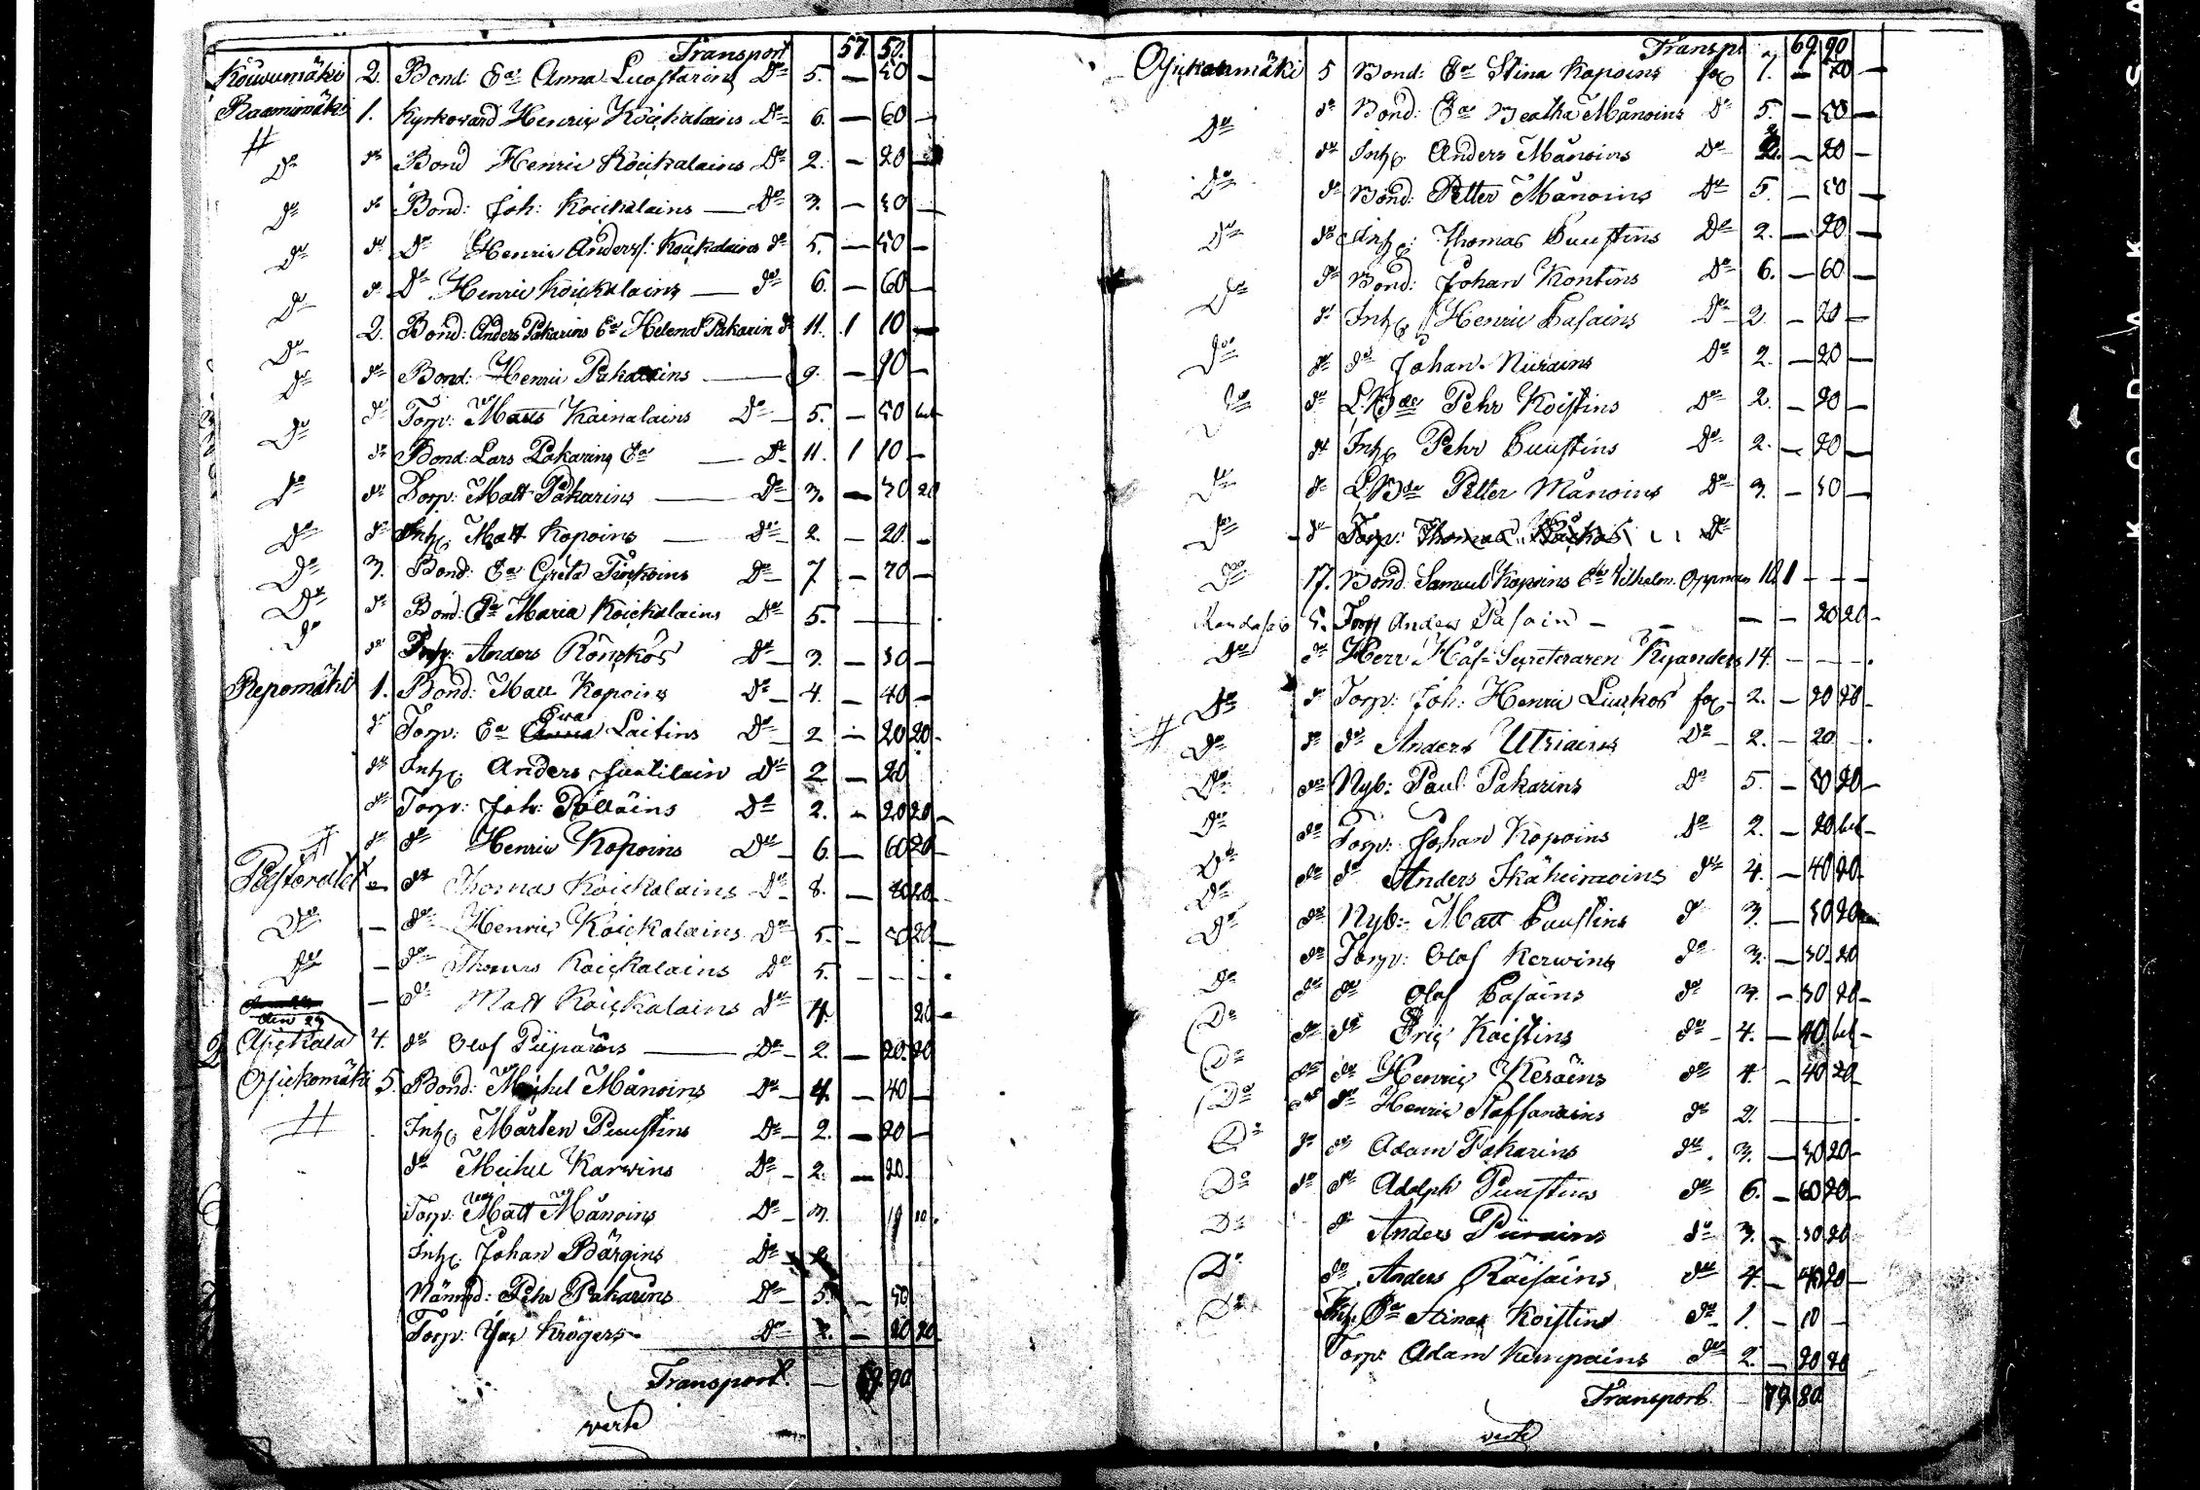 Transport 57. 50.
Kouvumäki 2. Bond: Ea Anna Luostarins Do 5. — 50 —
Raamimäki 1. Kyrkovärd Henric Koickalains Do 6. — 60 —
Do do Bond Henric Koickalains Do 2. — 20 —
Do do Bond: Joh: Koickalains — Do 3. — 30 —
Do do Do Henric Anderss: Koickalains do 5. — 50 —
Do do Do Henric Koickalains — do 6. — 60 —
Do 2. Bond: Anders Pakarins Ea Helena Pakarin do 11. 1 10 —
Do do Bond: Henric Pakarins — 9. — 90 —
Do do Torp: Matts Kainalains Do — 5. — 50
Do do Bond: Lars Pakarins Ea — Do 11. 1 10 —
Do do Torp: Matt Pakarins — Do 3. — 30 20
Do do Inh: Matt Kopoins — do 2. — 20 —
Do 3. Bond: Ea Greta Do 7 — 70 —
Do do Bond: Ea Maria Koickalains Do 5. —
Do do Inh: Anders Rönckös Do 3. — 30 —
Repomäki 1. Bond: Matt Kopoins Do 4. — 40 —
do Torp: Ea Eva Laitins Do 2 — 20 20 —
do Inh: Anders Do 2 — 20
do Torp: Joh: Pöllains Do 2. — 20 20 —
do do Henric Kopoins Do 6. — 60 20
Pastoratet — do Thomas Koickalains Do 8. — 80 20
Do — do Henric Koickalains Do 5. — 50 20 —
Do — do Thomas Koickalains Do 5. — — —
— do Matt Koickalains Do 4. 20 —
4. do Olof — Do 2. — 20. 20
Ojickomäki 5. Bond: Michel Månoins Do 4. — 40 —
Inh: Mårten Puustins Do 2. — 20 —
do Michel Karvins Do 2. — 20.
Torp: Matt Månoins Do 3.
Inh: Johan Bårgins Do
Nämnd: Pehr Pakarins Do 5. — 50
Torp: Krögers Do 2. — 20 20
Transport. — 69 90
verte
Transpt 69 90
Ojickomäki 5 Bond: Ea Stina Kopoins 7. — 70 —
Do do Bond: Ea Beatha Månoins Do 5. — 50 —
do Inh: Anders Månoins Do 2. — 20 —
Do do Bond: Petter Månoins Do 5. — 50 —
Do do Inh: Thomas Puustins Do 2. — 20 —
Do do Bond: Johan Kontins Do 6. — 60 —
do Inh: Henric Pasains Do 2. — 20 —
Do do do Johan Do 2. — 20 —
Do do Pehr Koistins Do 2. — 20 —
do Inh: Pehr Puustins Do 2. — 20 —
Do do Petter Månoins Do 3. — 30 —
Do do Torp: Thomas Do
Do 17. Bond: Samuel Kopoins 10 1 — — —
5. Torp Anders Pasain — — — 20 20 —
Do do Herr Hof: Secreteraren Kyanders 14. — — —
Do do Torp: Joh: Henric 2. — 20 20 —
Do do do Anders Utriains Do 2. — 20 —
Do do Nyb: Paul: Pakarins Do 5. — 50 20 —
Do do Torp: Johan Kopoins do 2. — 20
Do do do Anders Ikäheimoins do 4. — 40 20
Do do Nyb: Matt Puustins do 3. — 30 20
do Torp: Olof Kerwins do 3. — 30 20
Do do do Olof Pasains do 3. — 30 20 —
Do do do Eric Koistins do 4. — 40
Do do do Henric Keräins do 4. — 40 20
Do do do Henric Staffanains do 2. —
Do do do Adam Pakarins do 3. — 30 20 —
Do do do Adolph Puustins do 6. — 60 20 —
Do do Anders do 3. — 30 20
Do do Anders Räisäins do 4. — 40 20 —
Do Inh: Ea Stina Koistins do 1. — 10 —
Torp: Adam Kempains do 2. — 20 20
Transport. 79. 80
verte
KODAK SA